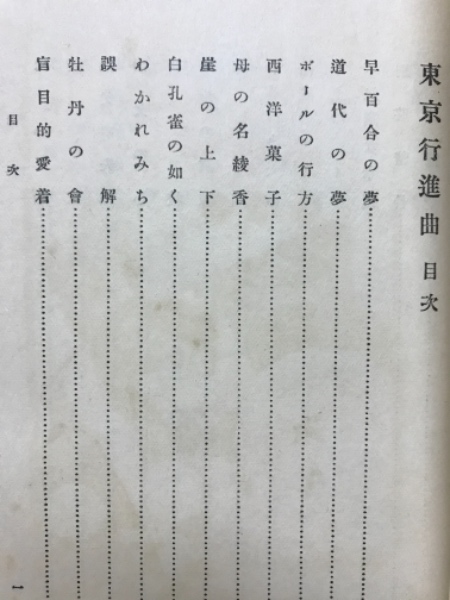 東京行進曲 目次
早百合の夢
道代の夢
ボールの行方
西洋菓子
母の名綾香
崖の上下
白孔雀の如く
わかれみち
誤解
牡丹の會
盲目的愛着
目次
一